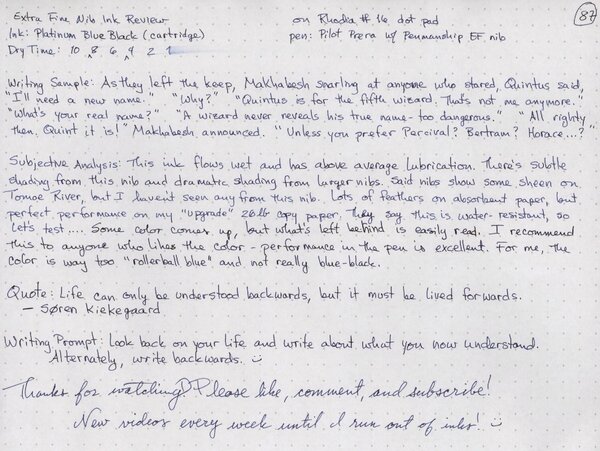 Extra Fine Nib Ink Review on Rhodia #16 dot pad 87
Ink: Platinum Blue Black (cartridge) pen: Pilot Prera w/ Penmanship EF nib
Dry Time: 10 8 6 4 2 1
Writing Sample: As they left the keep, Makhabesh snarling at anyone who stared, Quintus said,
"I'll need a new name." "Why?" "Quintus is for the fifth wizard. That's not me anymore."
"What's your real name?" "A wizard never reveals his true name - too dangerous." "All righty
then. Quint it is!" Makhabesh announced. "Unless you prefer Percival? Bertram? Horace...?"
Subjective Analysis: This ink flows wet and has above average lubrication. There's subtle
shading from this nib and dramatic shading from larger nibs. Said nibs show some sheen on
Tomoe River, but I haven't seen any from this nib. Lots of feathers on absorbent paper, but
perfect performance on my "upgrade" 26 lb copy paper. They say this is water-resistant, so
let's test.... Some color comes up, but what's left behind is easily read. I recommend
this to anyone who likes the color - performance in the pen is excellent. For me, the
color is way too "rollerball blue" and not really blue-black.
Quote: Life can only be understood backwards, but it must be lived forwards.
— Søren Kiekegaard
Writing Prompt: Look back on your life and write about what you now understand.
Alternately, write backwards.
Thanks for watching! Please like, comment, and subscribe!
New videos every week until I run out of inks!